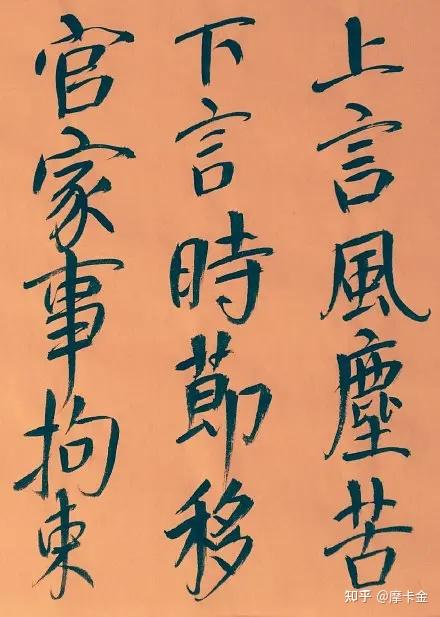 上言風塵苦
下言時節移
官家事拘束
知乎 @摩卡金